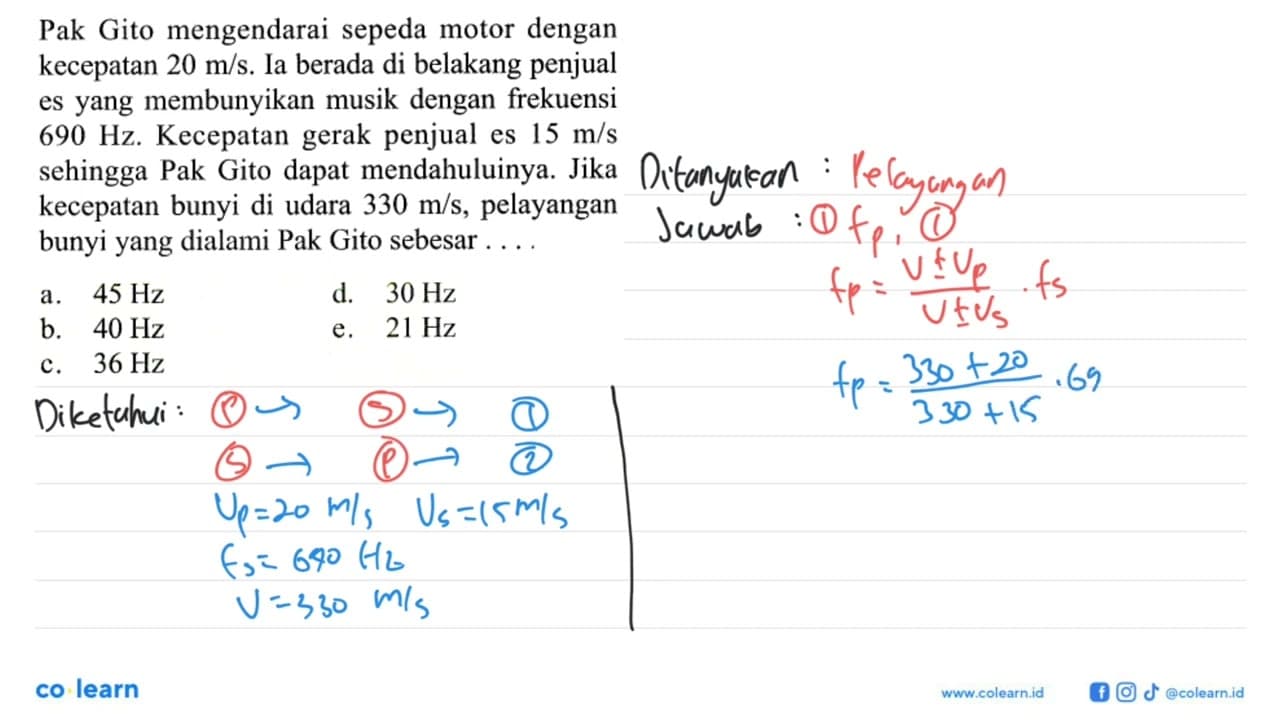 Pak Gito mengendarai sepeda motor dengan
kecepatan 20 m/s. Ia berada di belakang penjual
es yang membunyikan musik dengan frekuensi
690 Hz. Kecepatan gerak penjual es 15 m/s
sehingga Pak Gito dapat mendahuluinya. Jika
kecepatan bunyi di udara 330 m/s, pelayangan
bunyi yang dialami Pak Gito sebesar . . . .
a. 45 Hz
b. 40 Hz
c. 36 Hz
d. 30 Hz
e. 21 Hz
Diketahui : P → S → ①
S → P → ②
Vp = 20 m/s Vs = 15 m/s
fs = 690 Hz
V = 330 m/s
Ditanyakan : Pelayangan
Jawab : ① fp, ①
fp = V ± Vp / V ± Vs . fs
fp = 330 + 20 / 330 + 15 . 69
co learn
www.colearn.id @colearn.id